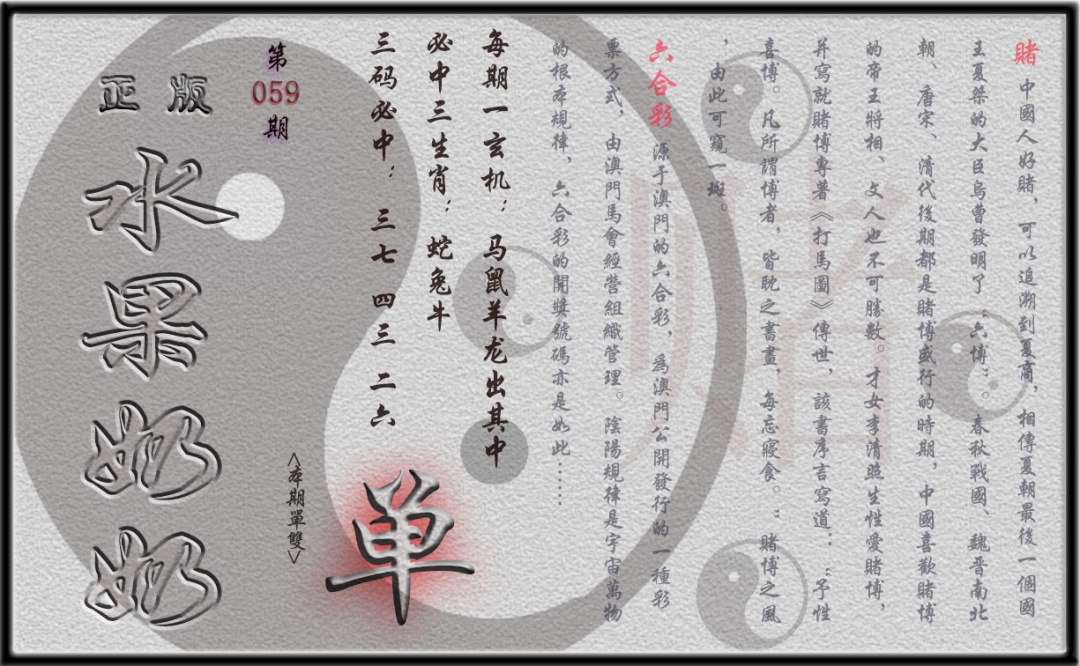 賭 中國人好賭，可以追溯到夏商，相傳夏朝最後一個國
王夏桀的大臣烏曹發明了“六博”。春秋戰國、魏晋南北
朝、唐宋、清代後期都是賭博盛行的時期，中國喜歡賭博
的帝王將相、文人也不可勝數。才女李清照生性愛賭博，
并寫就賭博專著《打馬圖》傳世，該書序言寫道：“予性
喜博。凡所謂博者，皆耽之書畫，每忘寢食。”賭博之風
，由此可窺一斑。
六合彩 源于澳門的六合彩，為澳門公開發行的一種彩
票方式，由澳門馬會經營組織管理。陰陽規律是宇宙萬物
的根本規律，六合彩的開獎號碼亦是如此……
每期一玄机：马鼠羊龙出其中
必中三生肖：蛇兔牛
三码必中：三七 四三 二六
单
<本期單雙>
第
059
期
正版
水果奶奶